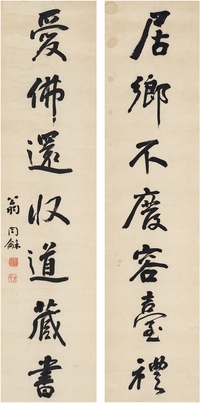 居鄉不廢容臺禮
愛佛還收道藏書
翁同龢